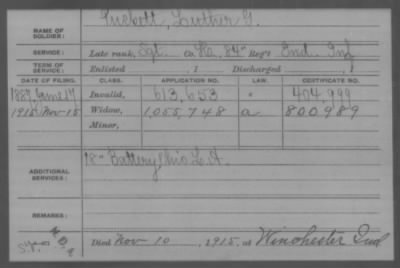 NAME OF SOLDIER: Puckett, Luther G.
SERVICE: Late rank, Sgt Co. K, 84" Reg't Ind. Inf
TERM OF SERVICE: Enlisted , 1 Discharged , 1
DATE OF FILING. CLASS. APPLICATION NO. LAW. CERTIFICATE NO.
1887, June 17 Invalid, 613,653 " 404,999
1915 Nov-15 Widow, 1,055,748 a 800,989
Minor,
ADDITIONAL SERVICES: 18" Battery Ohio L. A.
REMARKS:
Died Nov 10, 1915, at Winchester Ind